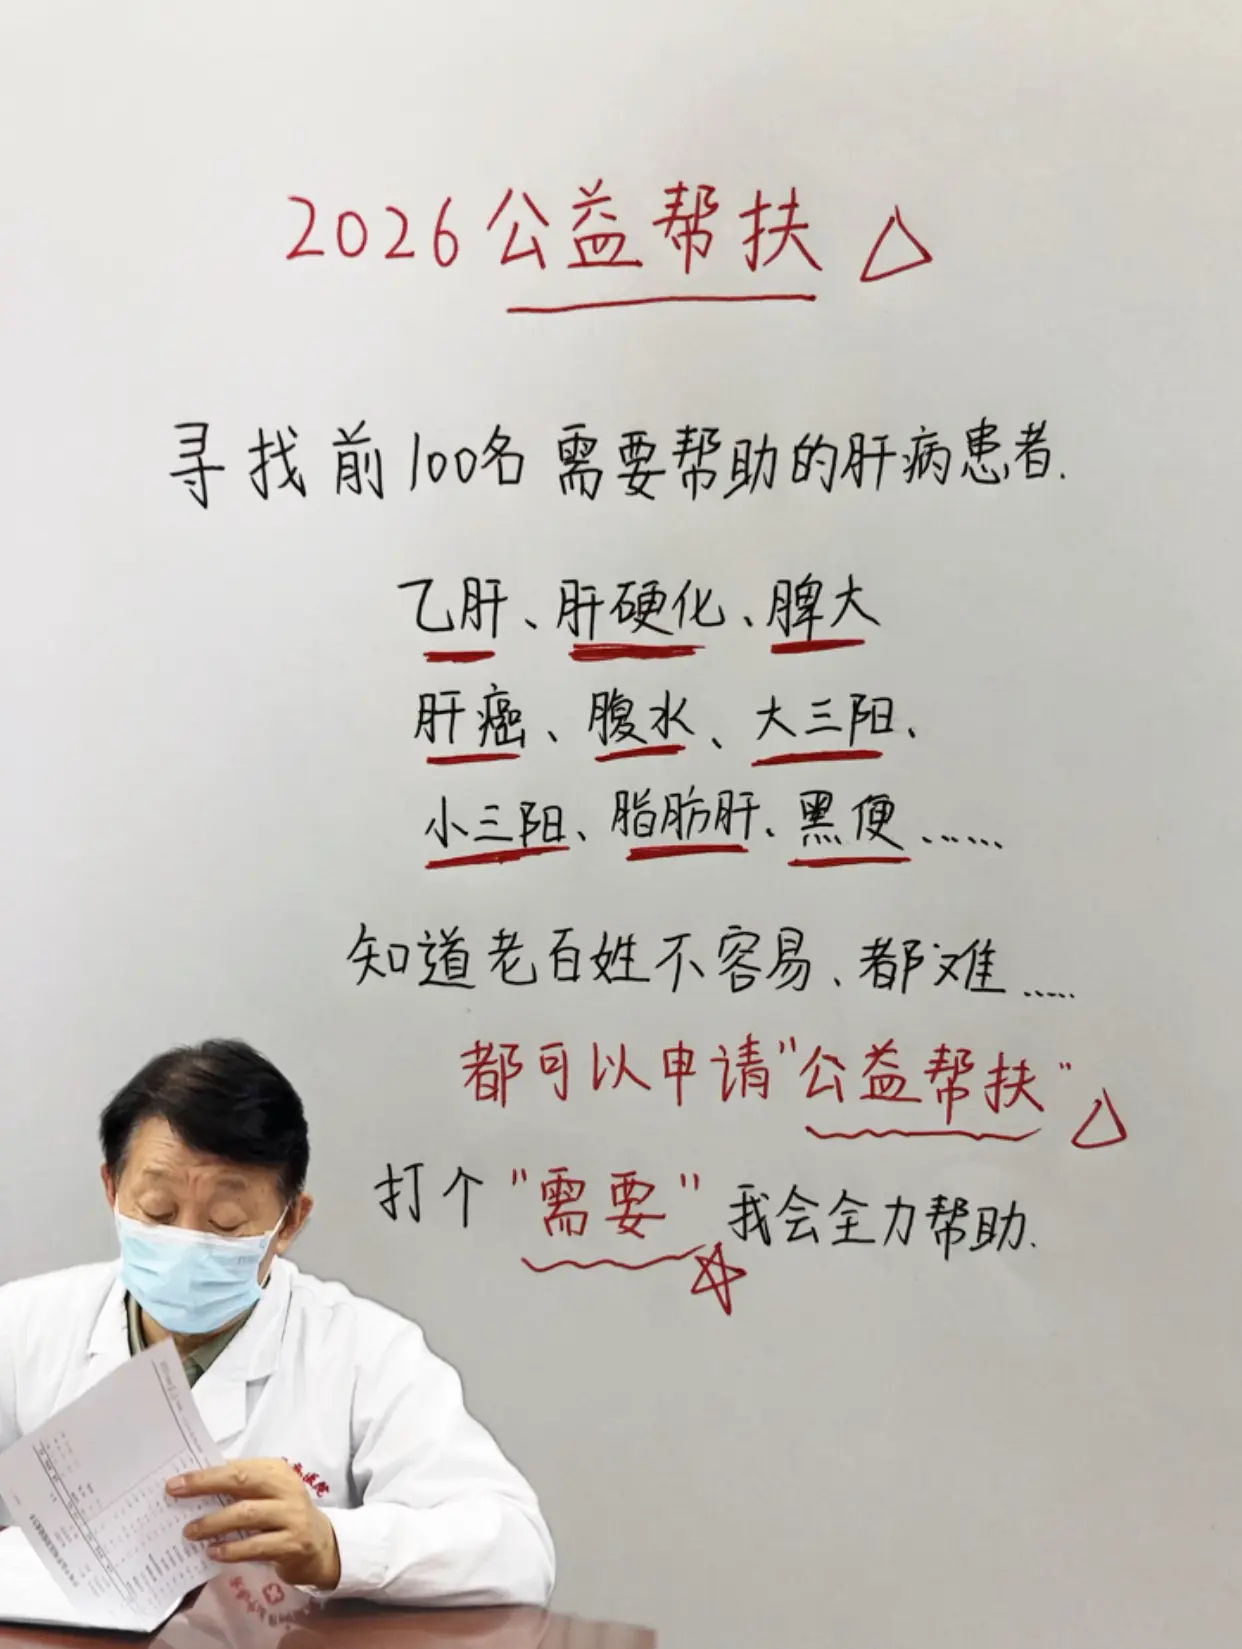 2026公益帮扶
寻找前100名需要帮助的肝病患者.
乙肝、肝硬化、脾大
肝癌、腹水、大三阳、
小三阳、脂肪肝、黑便......
知道老百姓不容易、都难.....
都可以申请"公益帮扶"
打个"需要"我会全力帮助.
医院